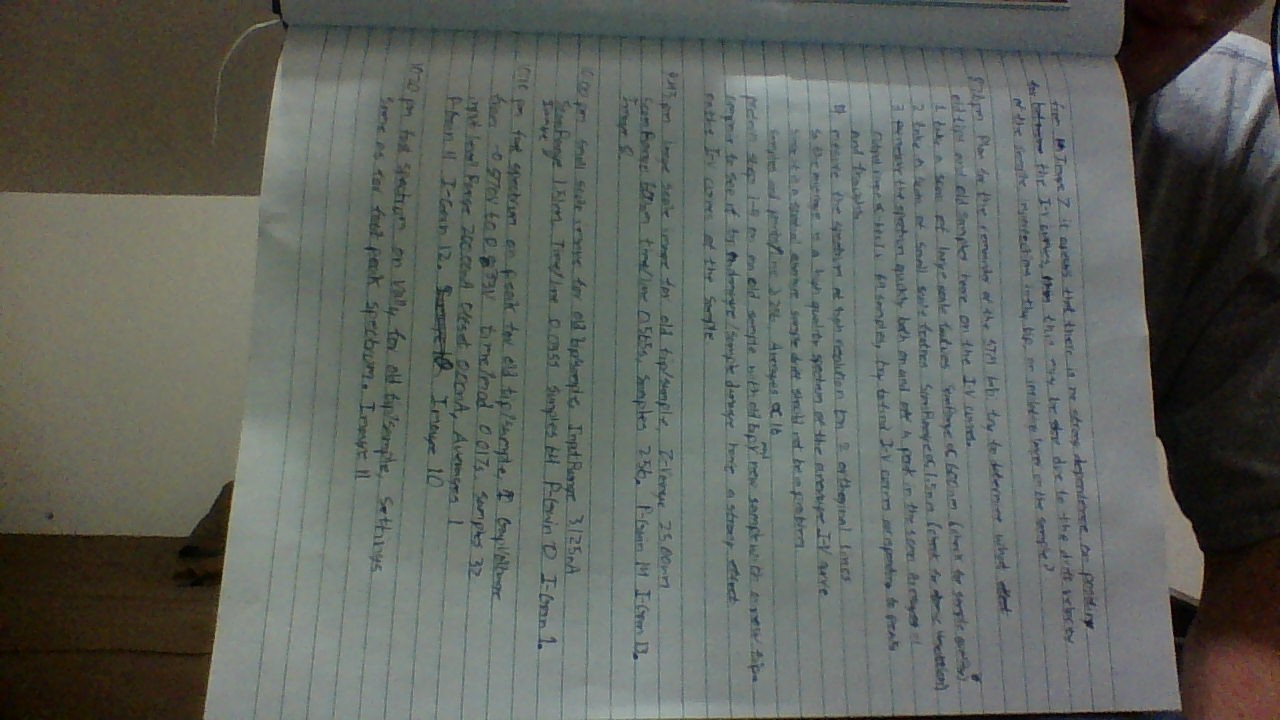 from Image 7 it apears that there is no strong dependence on position
for the I-V curves, this may be due to the drift velocity
of the sample, imperfections in the tip, or insulating layer on the sample?
pm Plan for the remainder of the STM lab: try to determine what effect
old tips and old samples have on the I-V curves.
1 take a scan of large scale features ScanRange ∝ 600nm (check for sample quality)
2 take a scan of small scale features ScanRange ∝ 1.5nm (check for atomic resolution)
3 measure the spectrum quickly both on and off a peak in the scan Averages
64 samples, try to find I-V curves corresponding to peaks
and troughs
4 mesure the spectrum at high resolution on 2 orthoginal lines
so the average is a high quality spectrum of the average I-V curve
since it is a spatial average sample drift should not be a problem
samples and points/line ≥ 256, Averages ∝ 16
preform step 1-4 on an old sample with old tip and new sample with a new tip.
compair to see if tip damage/sample damage have a strong effect
on the I-V curves of the sample
pm large scale image for old tip/sample, Z-range 25.00nm
ScanRange 600nm time/line 0.565s, samples 256. P-Gain 14 I-Gain 13.
Image 8.
10:00 pm small scale image for old tip/sample, InputRange 3.125nA
ScanRange 1.51nm, Time/line 0.095s samples 64 P-Gain 0 I-Gain 1.
Image 9
10:10 pm fast spectrum on peak for old tip/sample, GapVoltage
from time/mod 0.017s, samples 32
input level Range 200.00nA Offset 0.00nA, Averages 1
P-Gain 11 I-Gain 12. Image 10
10:20 pm fast spectrum on vally for old tip/sample, settings
same as for fast peak spectrum. Image 11